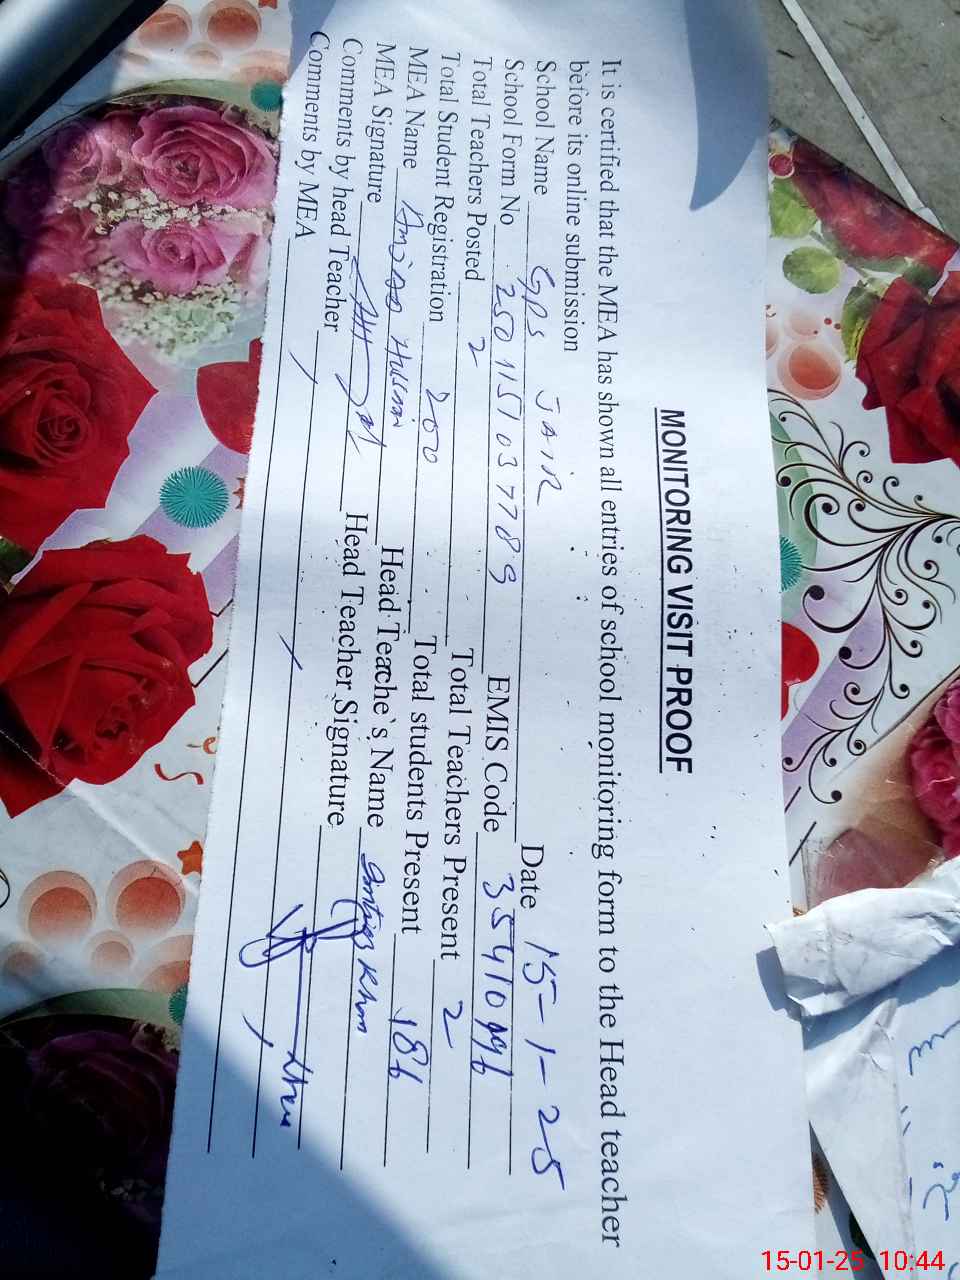 MONITORING VISIT PROOF
It is certified that the MEA has shown all entries of school monitoring form to the Head teacher
before its online submission
School Name GPS JAIR Date 15-1-25
School Form No 2501151037789 EMIS Code 35410996
Total Teachers Posted 2 Total Teachers Present 2
Total Student Registration 200 Total students Present 186
MEA Name Amjad Hussain Head Teache`s Name Imtiaz Khan
MEA Signature Head Teacher Signature
Comments by head Teacher
Comments by MEA
15-01-25 10:44